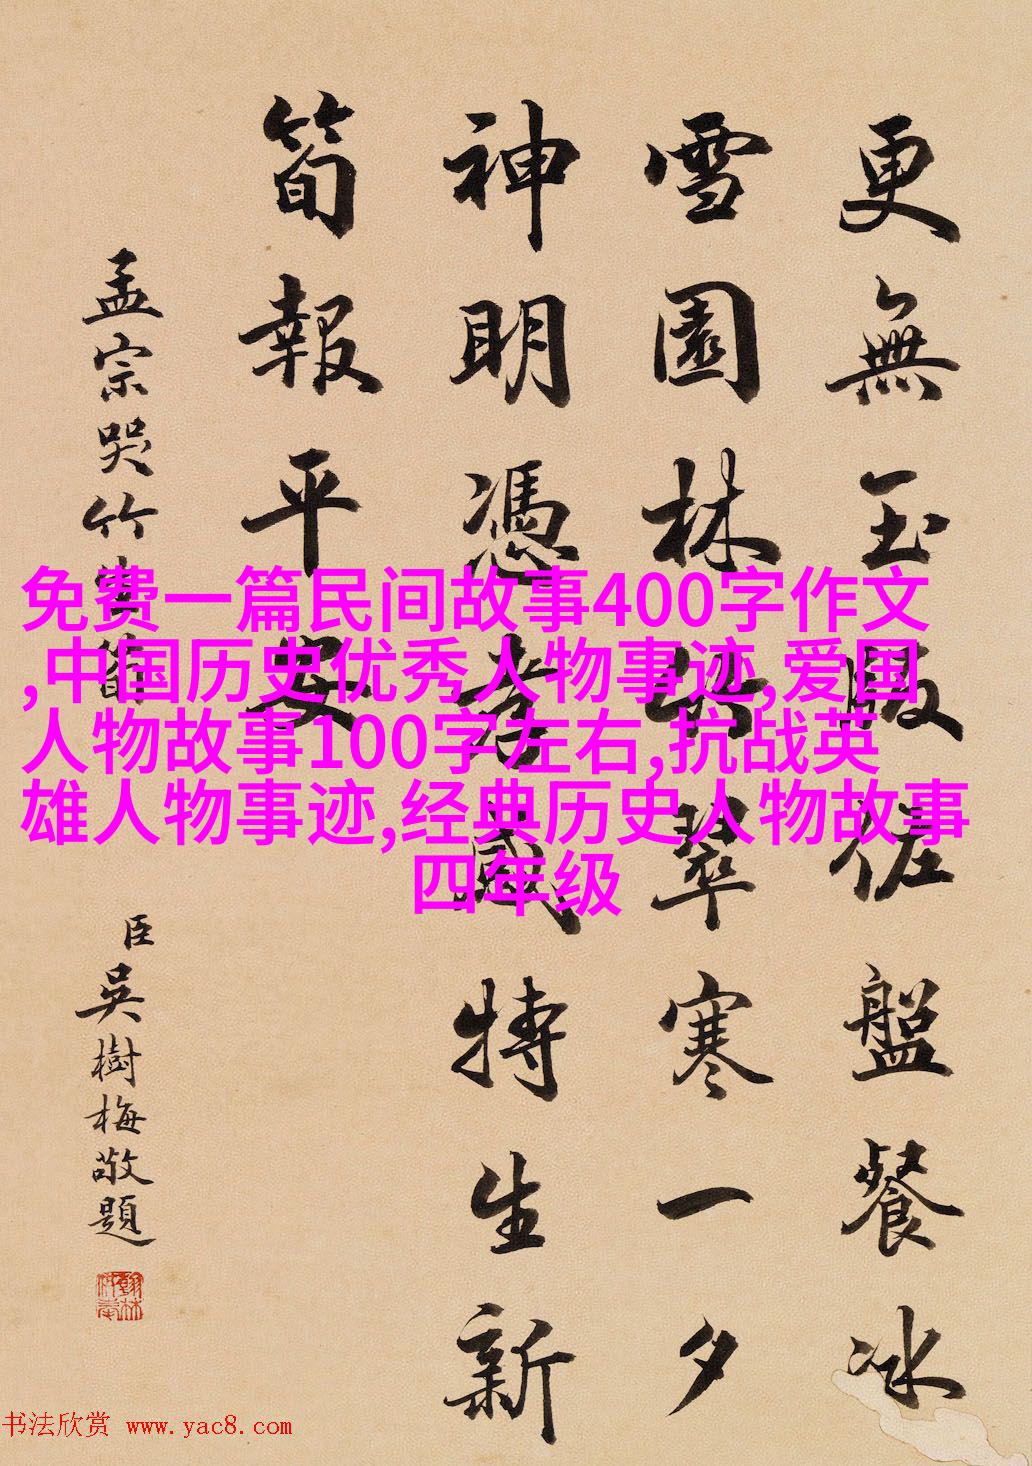 更無玉版佐盤餐冰
雪園林竹翠寒一夕
神明憑孝感特生新
筍報平安
孟宗哭竹生筍
臣吳樹梅敬題
免费一篇民间故事400字作文
,中国历史优秀人物事迹,爱国
人物故事100字左右,抗战英
雄人物事迹,经典历史人物故事
四年级
书法欣赏 www.yac8.com